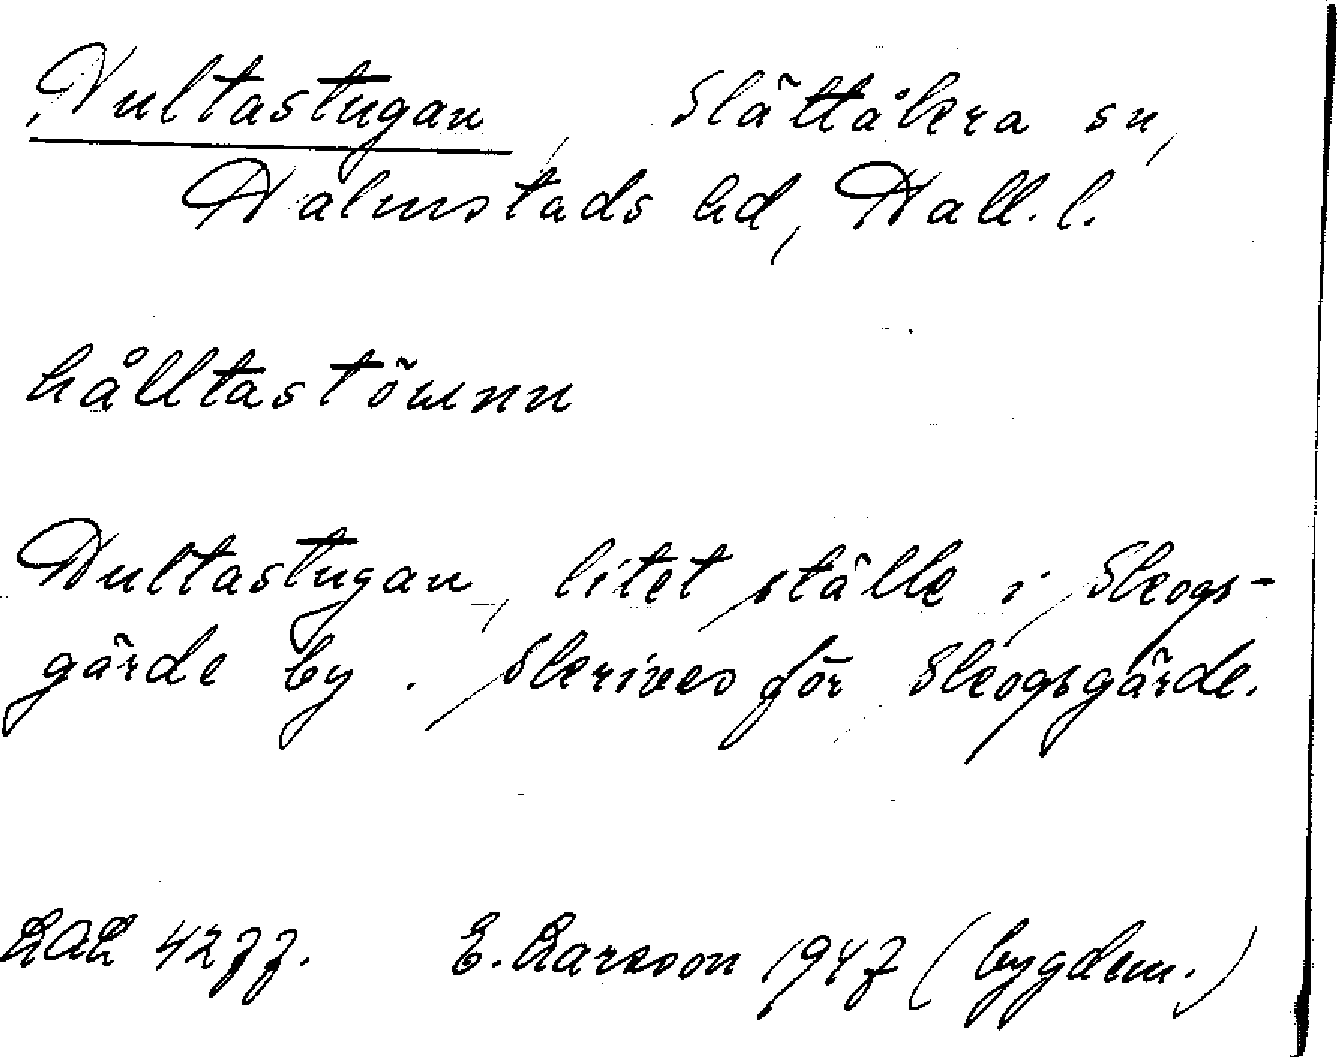 Hultastugan, Slättåkra sn,
Halmstads hd, Hall. l.
hålltastöwnn
Hultastugan, litet ställe i Skogs-
gärde by. Skrives för Skogsgärde.
LAL 4277. E. Larsson 1947 (bygdem.)